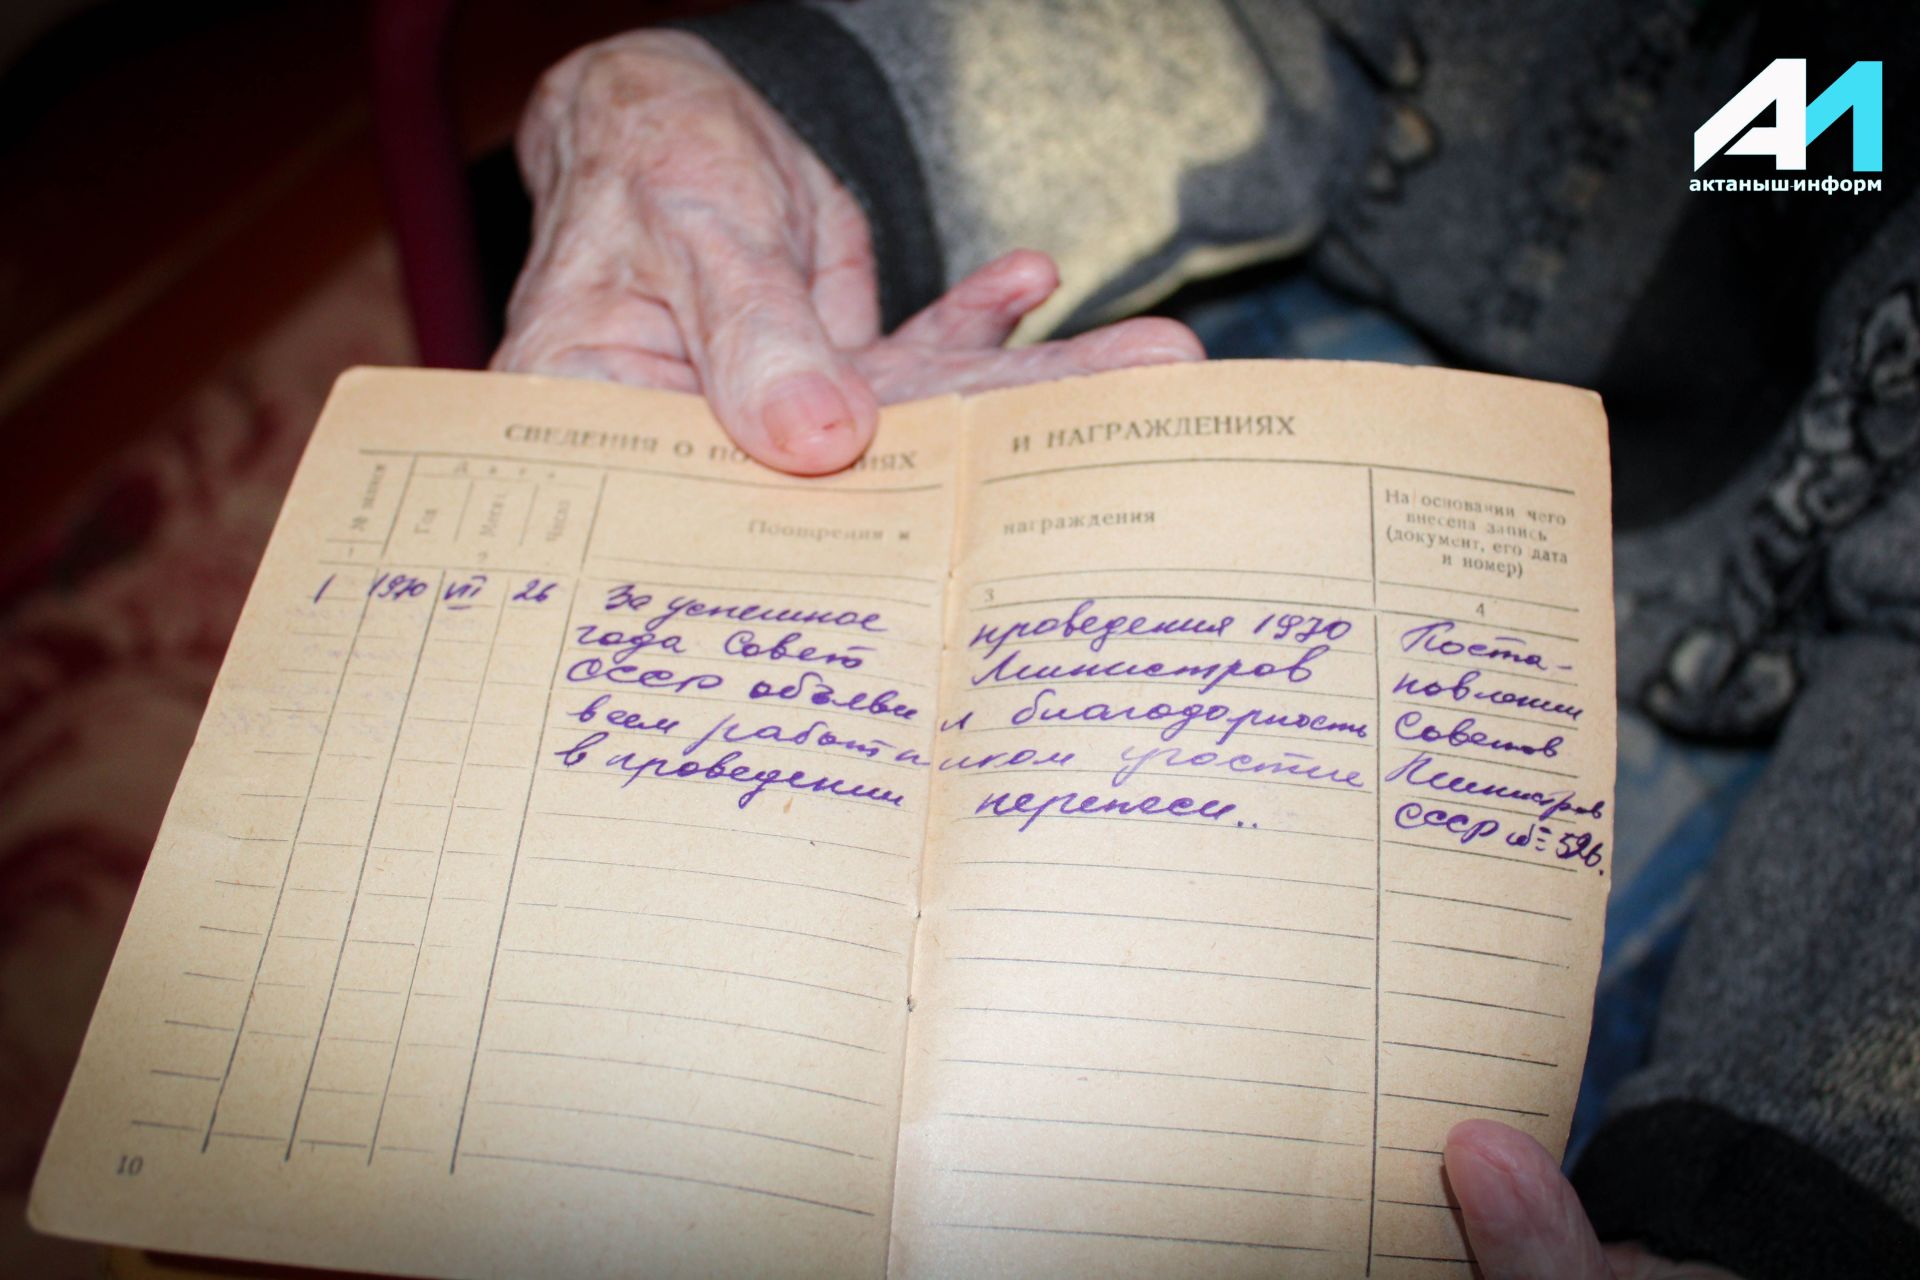 АИ
актаныш-информ
СВЕДЕНИЯ О ПО ИЯХ И НАГРАЖДЕНИЯХ
№ записи
Дата
Год
Месяц
Число
Поощрения и награждения
На основании чего
внесена запись
(документ, его дата
и номер)
1 2 3 4
1 1970 VII 26 За успешное проведения 1970
года Совет Министров
СССР объяви л благодарность
всем работн иком участие
в проведении переписи..
Поста-
новлении
Советов
Министров
СССР № 526.
10